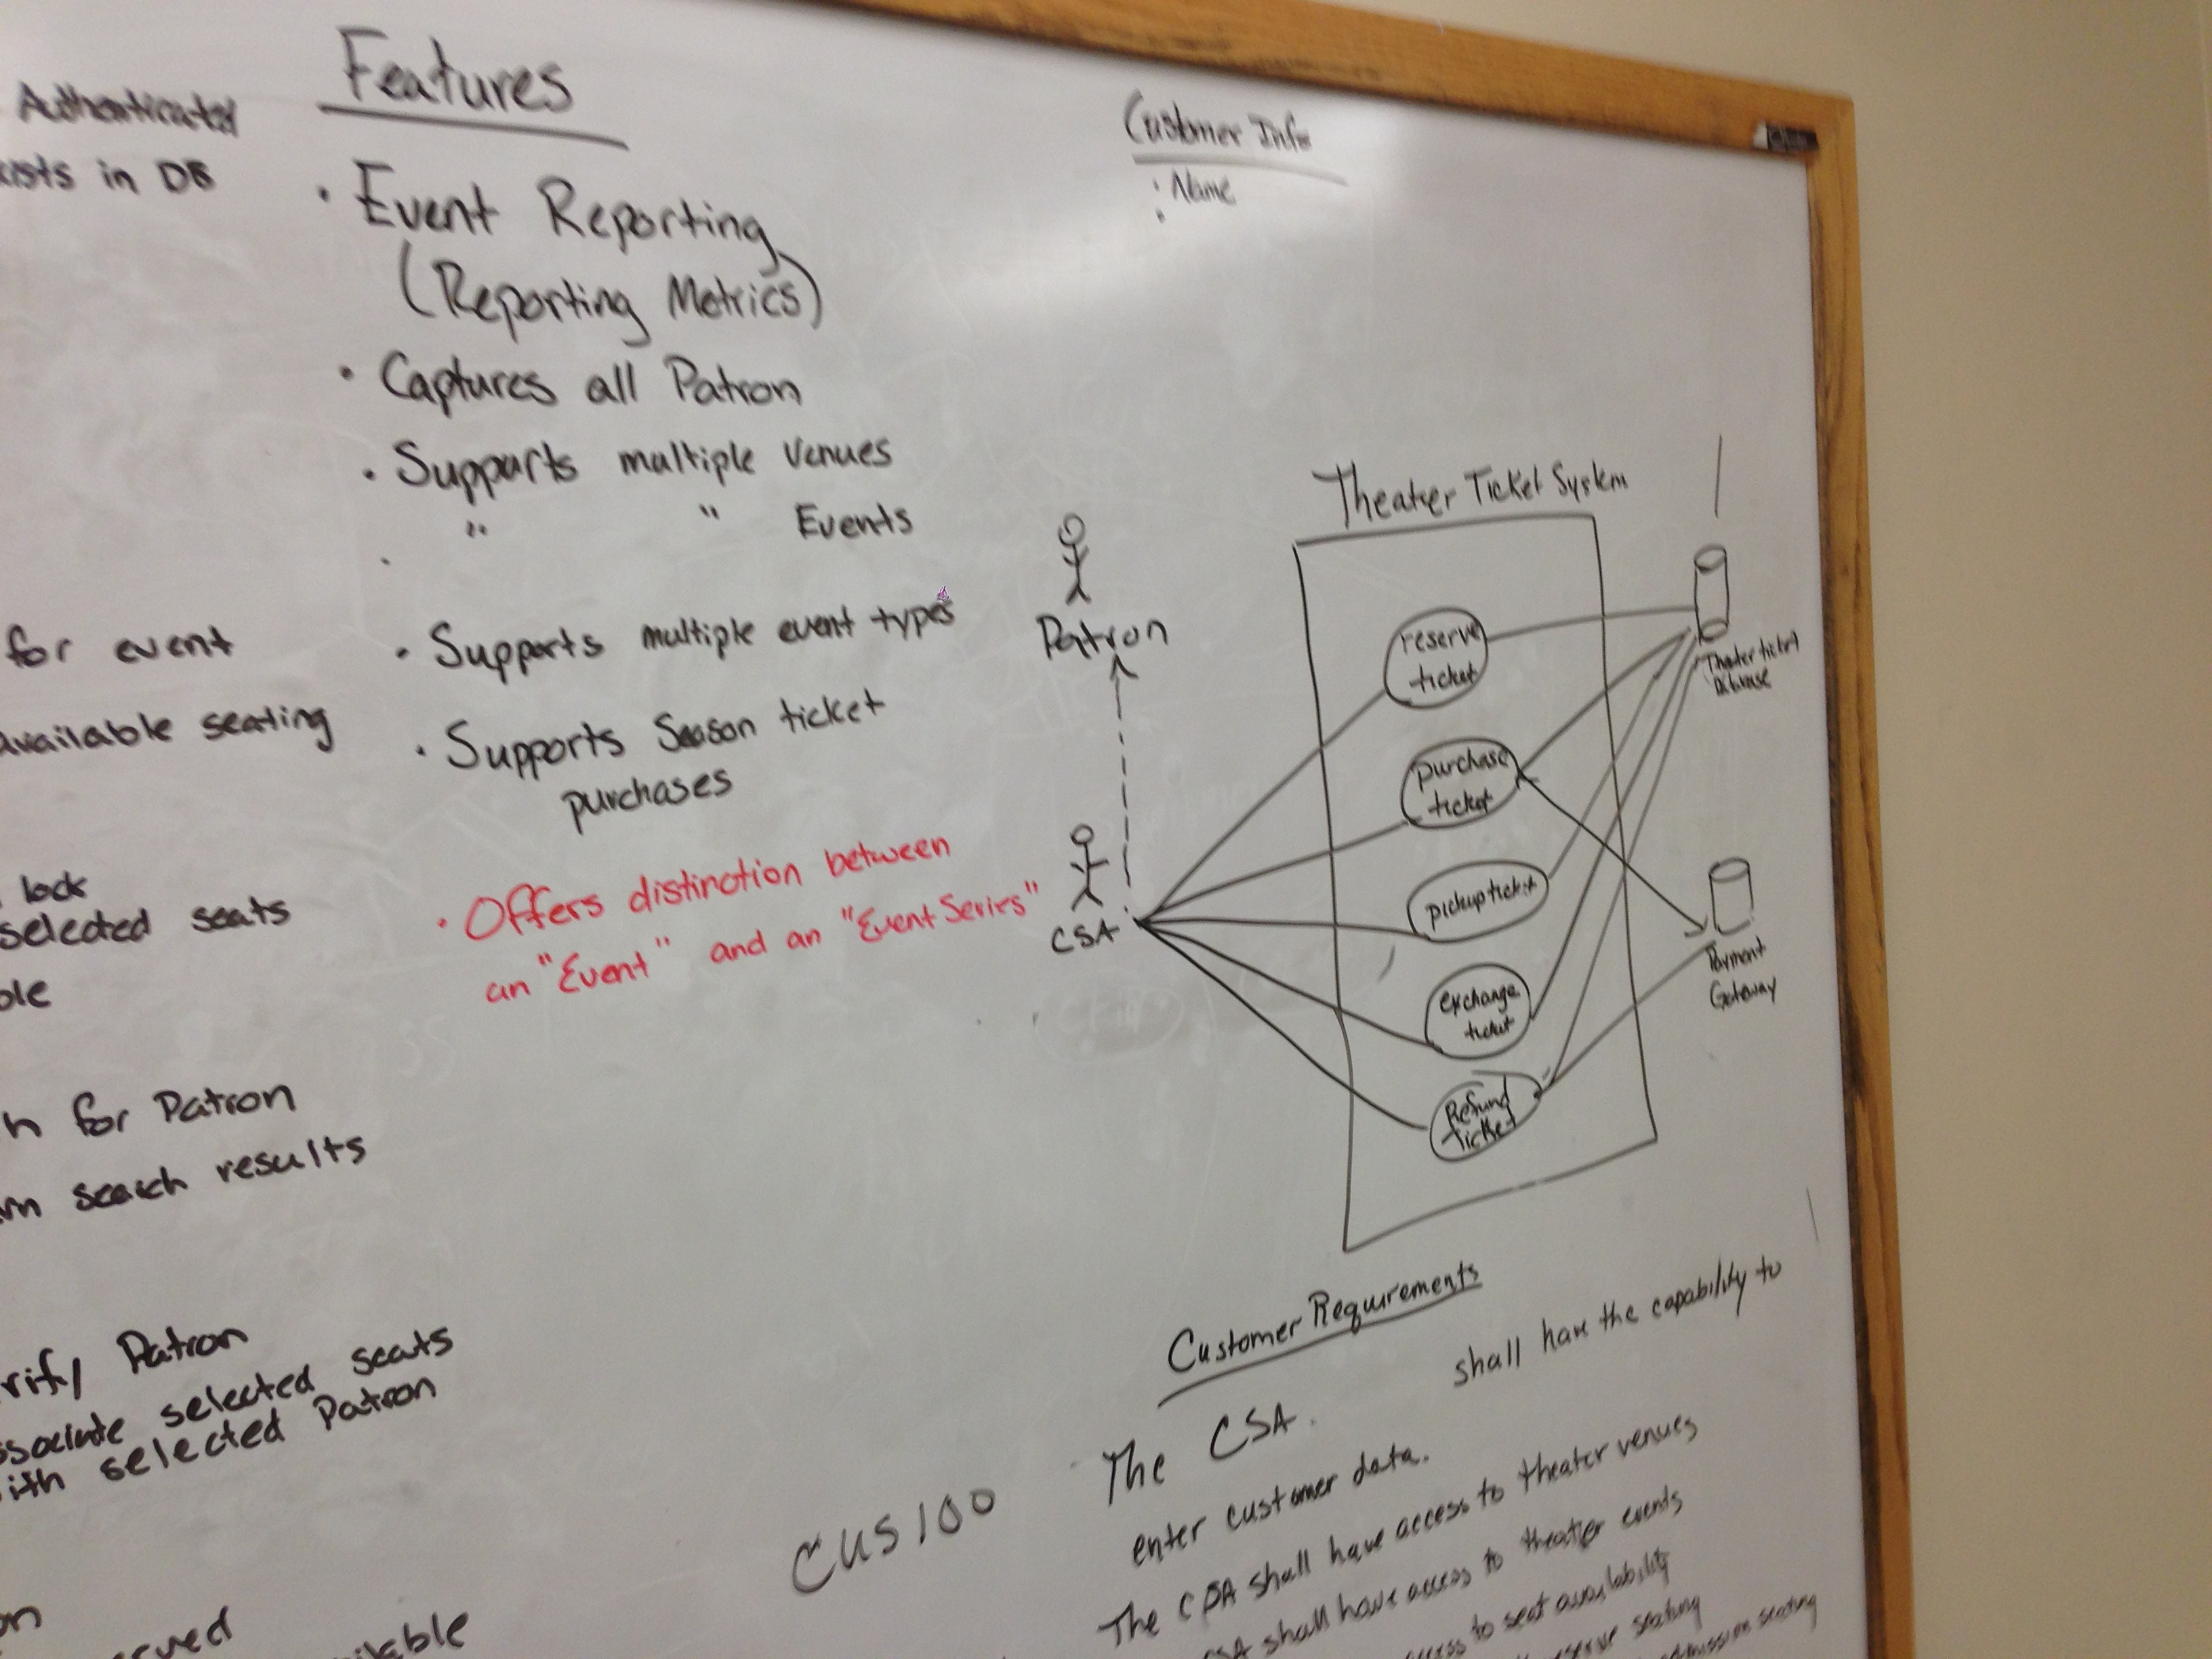 Authenticated
in DB
for event
available seating
lock
selected seats
for Patron
search results
Patron
selected seats
with selected Patron
Features
• Event Reporting
(Reporting Metrics)
• Captures all Patron
• Supports multiple venues
• " " Events
• Supports multiple event types
• Supports Season ticket
purchases
• Offers distinction between
an "Event" and an "Event Series"
Customer Info
• Name
•
Theater Ticket System
Patron
CSA
reserve
ticket
purchase
ticket
pickup ticket
exchange
ticket
Refund
Ticket
Theater ticket
Database
Payment
Gateway
Customer Requirements
CUS100
The CSA shall have the capability to
enter customer data.
The CSA shall have access to theater venues
CSA shall have access to theater events
access to seat availability
reserve seating
admission seating